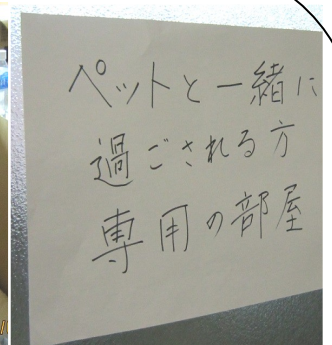 ペットと一緒に
過ごされる方
専用の部屋